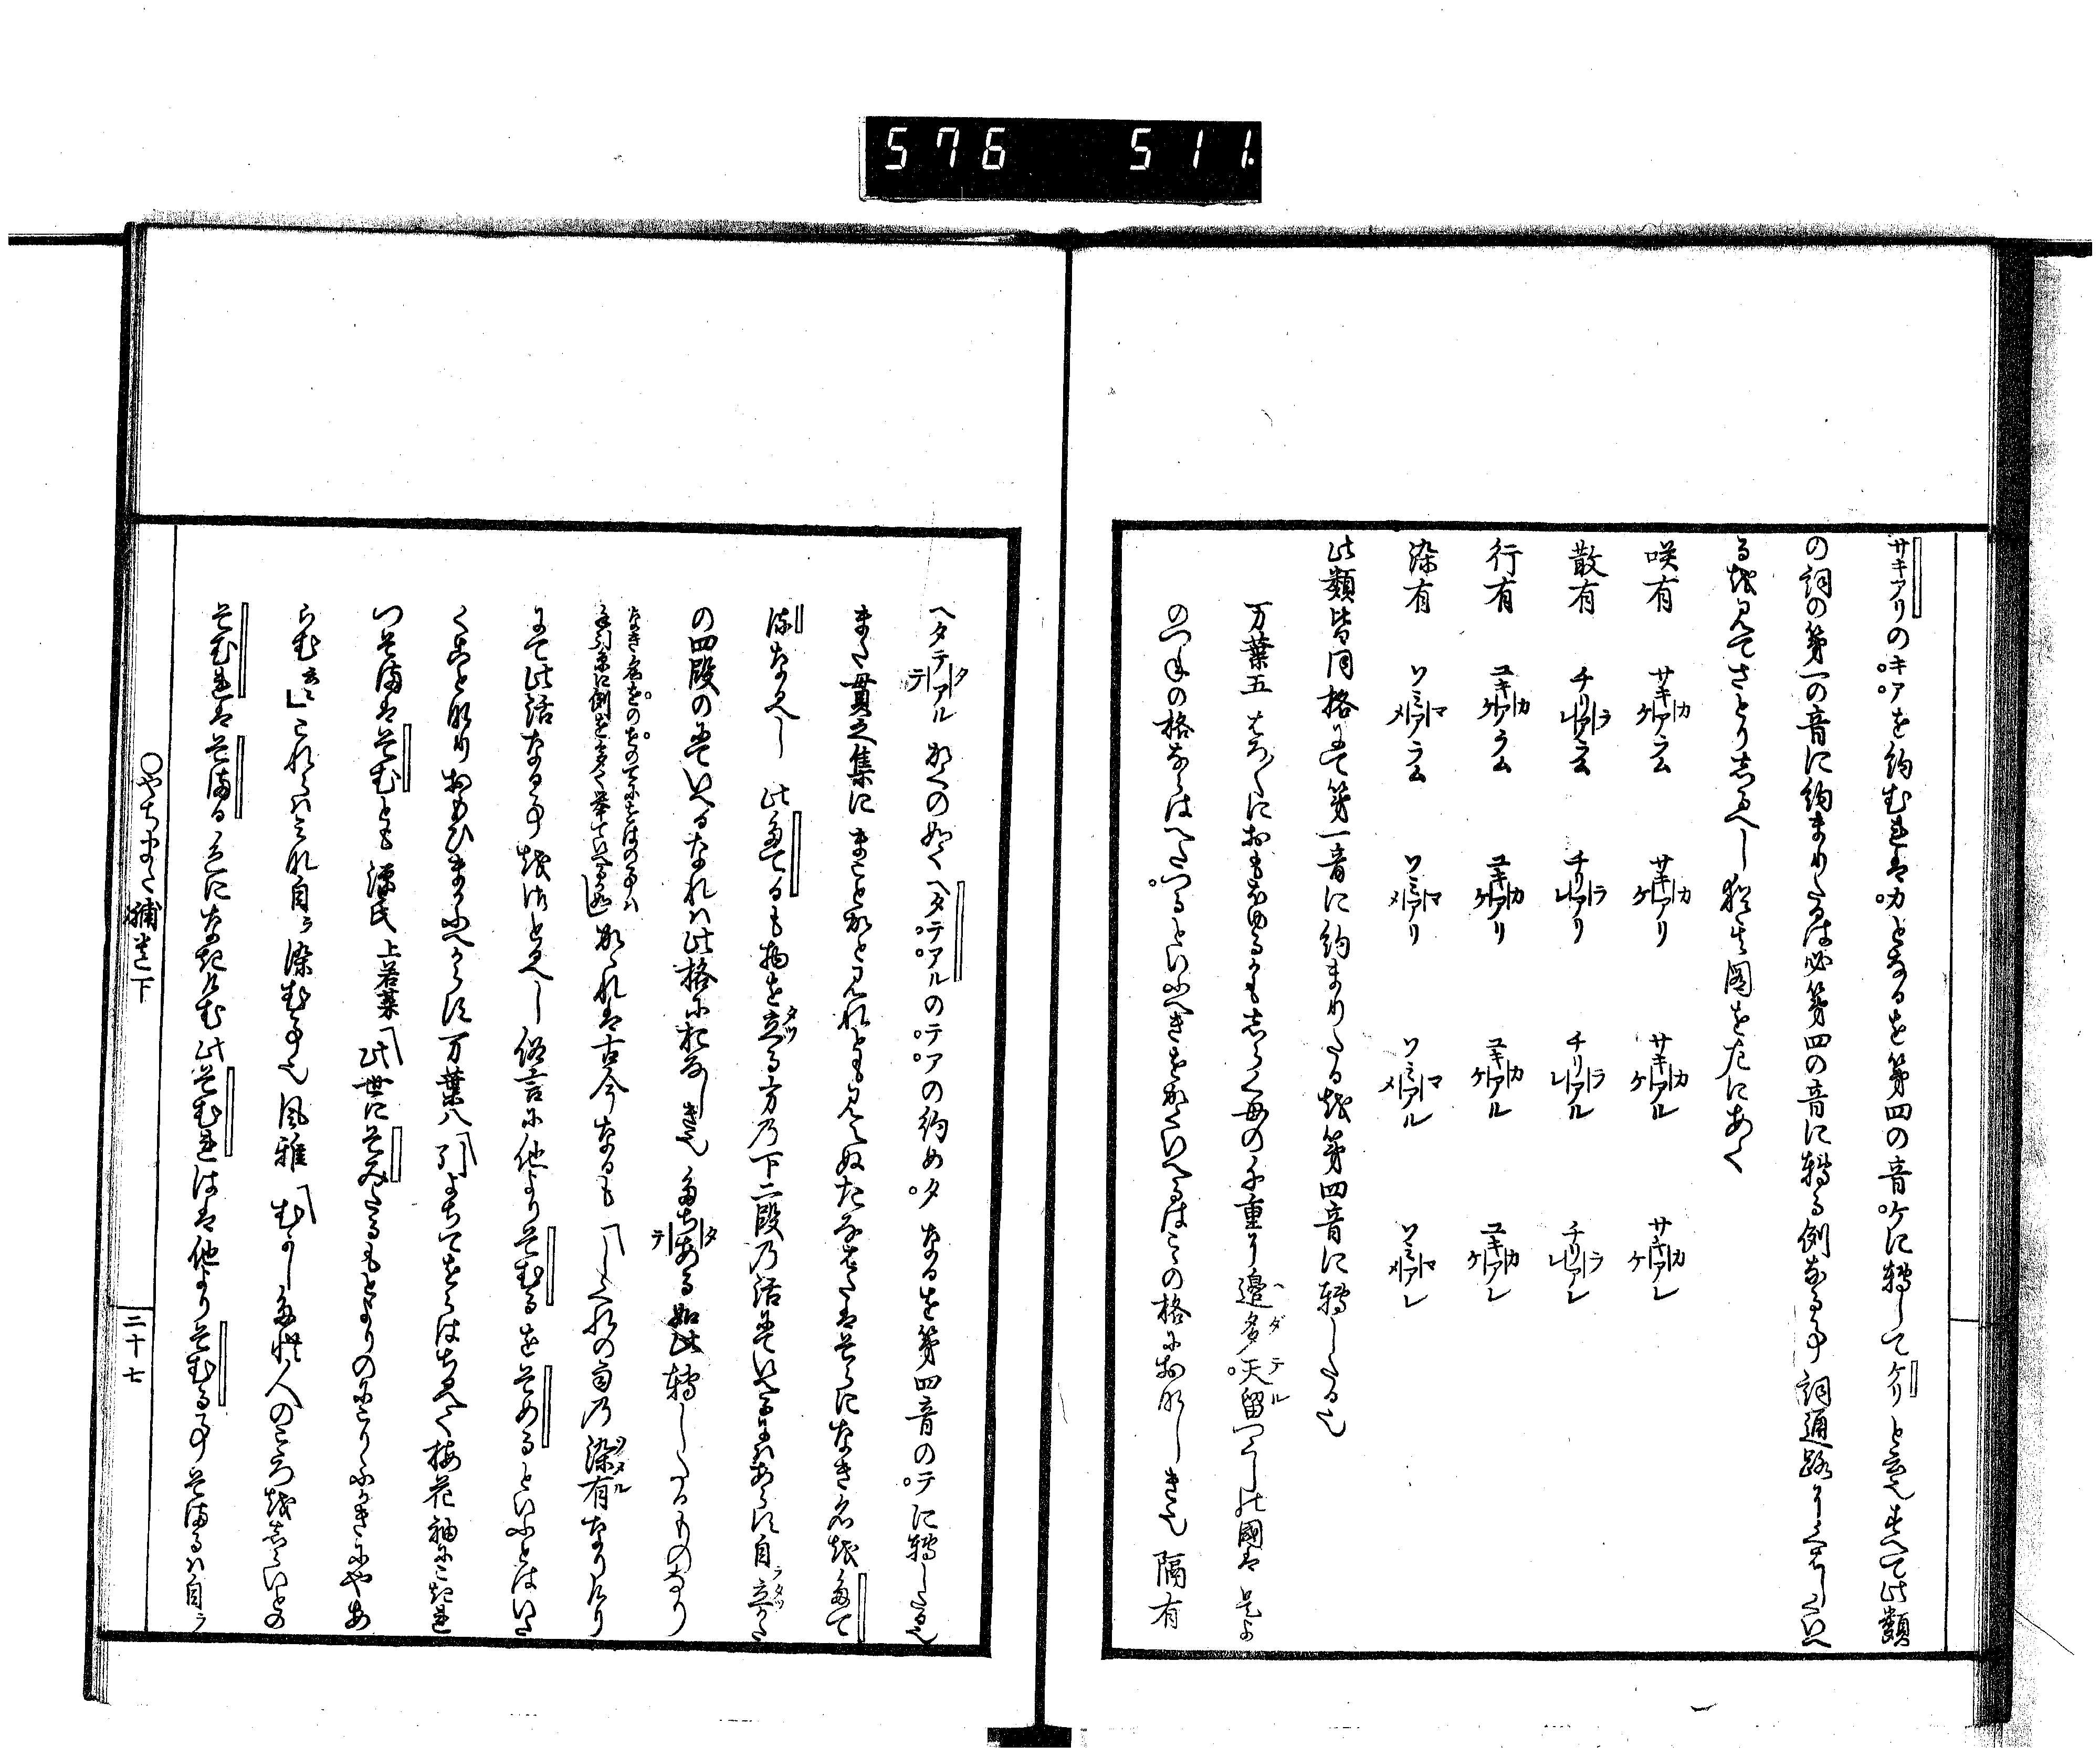 576 511
サキアリのキアを約むればカとなるを第四の音ケに轉してケリと云也すへて此類
の詞の第一の音に約まりたるは必第四の音に轉る例なる事詞通路にくはしくいへ
るを見てさとり志るへし猶其圖を左にあく
咲有 サキアラム カ ケ サキアリ カ ケ サキアル カ ケ サキアレ カ ケ
散有 チリアラム ラ レ チリアリ ラ レ チリアル ラ レ チリアレ ラ レ
行有 ユキアラム カ ケ ユキアリ カ ケ ユキアル カ ケ ユキアレ カ ケ
染有 ソミアラム マ メ ソミアリ マ メ ソミアル マ メ ソミアレ マ メ
此類皆同格にて第一音に約まりたるを第四音に轉したる也
万葉五 はろ〳〵におもほゆるかも志ら雲の千重に邊多天留つくしの國は 是よ
のつねの格ならはへたつるといふへきをかくいへるはこの格におなしき也 隔有
ヘタテアル タ テ かくの如くヘタテアルのテアの約めタなるを第四音のテに轉したる也
また貫之集に まことかと見れとも見えぬたなはたはそらになき名をたて
るなるへし 此たてるも物を立る方乃下二段乃活にていへるにはあらす自立かた
の四段のにていへるなれは此格におなしき也 たちある タ テ 如此轉したるものなり
なき名をのをのてにをはの事は
かゝれは古今なるも しくれの雨乃染有なりけり
にて此活なる事をさとるへし俗言に他よりそむるをそめるといふとはいた
くことなりおもひまかふへからす万葉八 引よちてをらはちるへく梅花袖にこきれ
つそまはそむとも 源氏 上若菜 此世にそみたるもとよりのにこりふかきにやあ
らむ 云々 これらはみな自ラ染む事也 風雅 むかしたれ人のこころを志らいとの
そむれはそまる色になれけむ 此そむれはは他よりそむる事そまるは自ラ
○やちまた補遺下 二十七